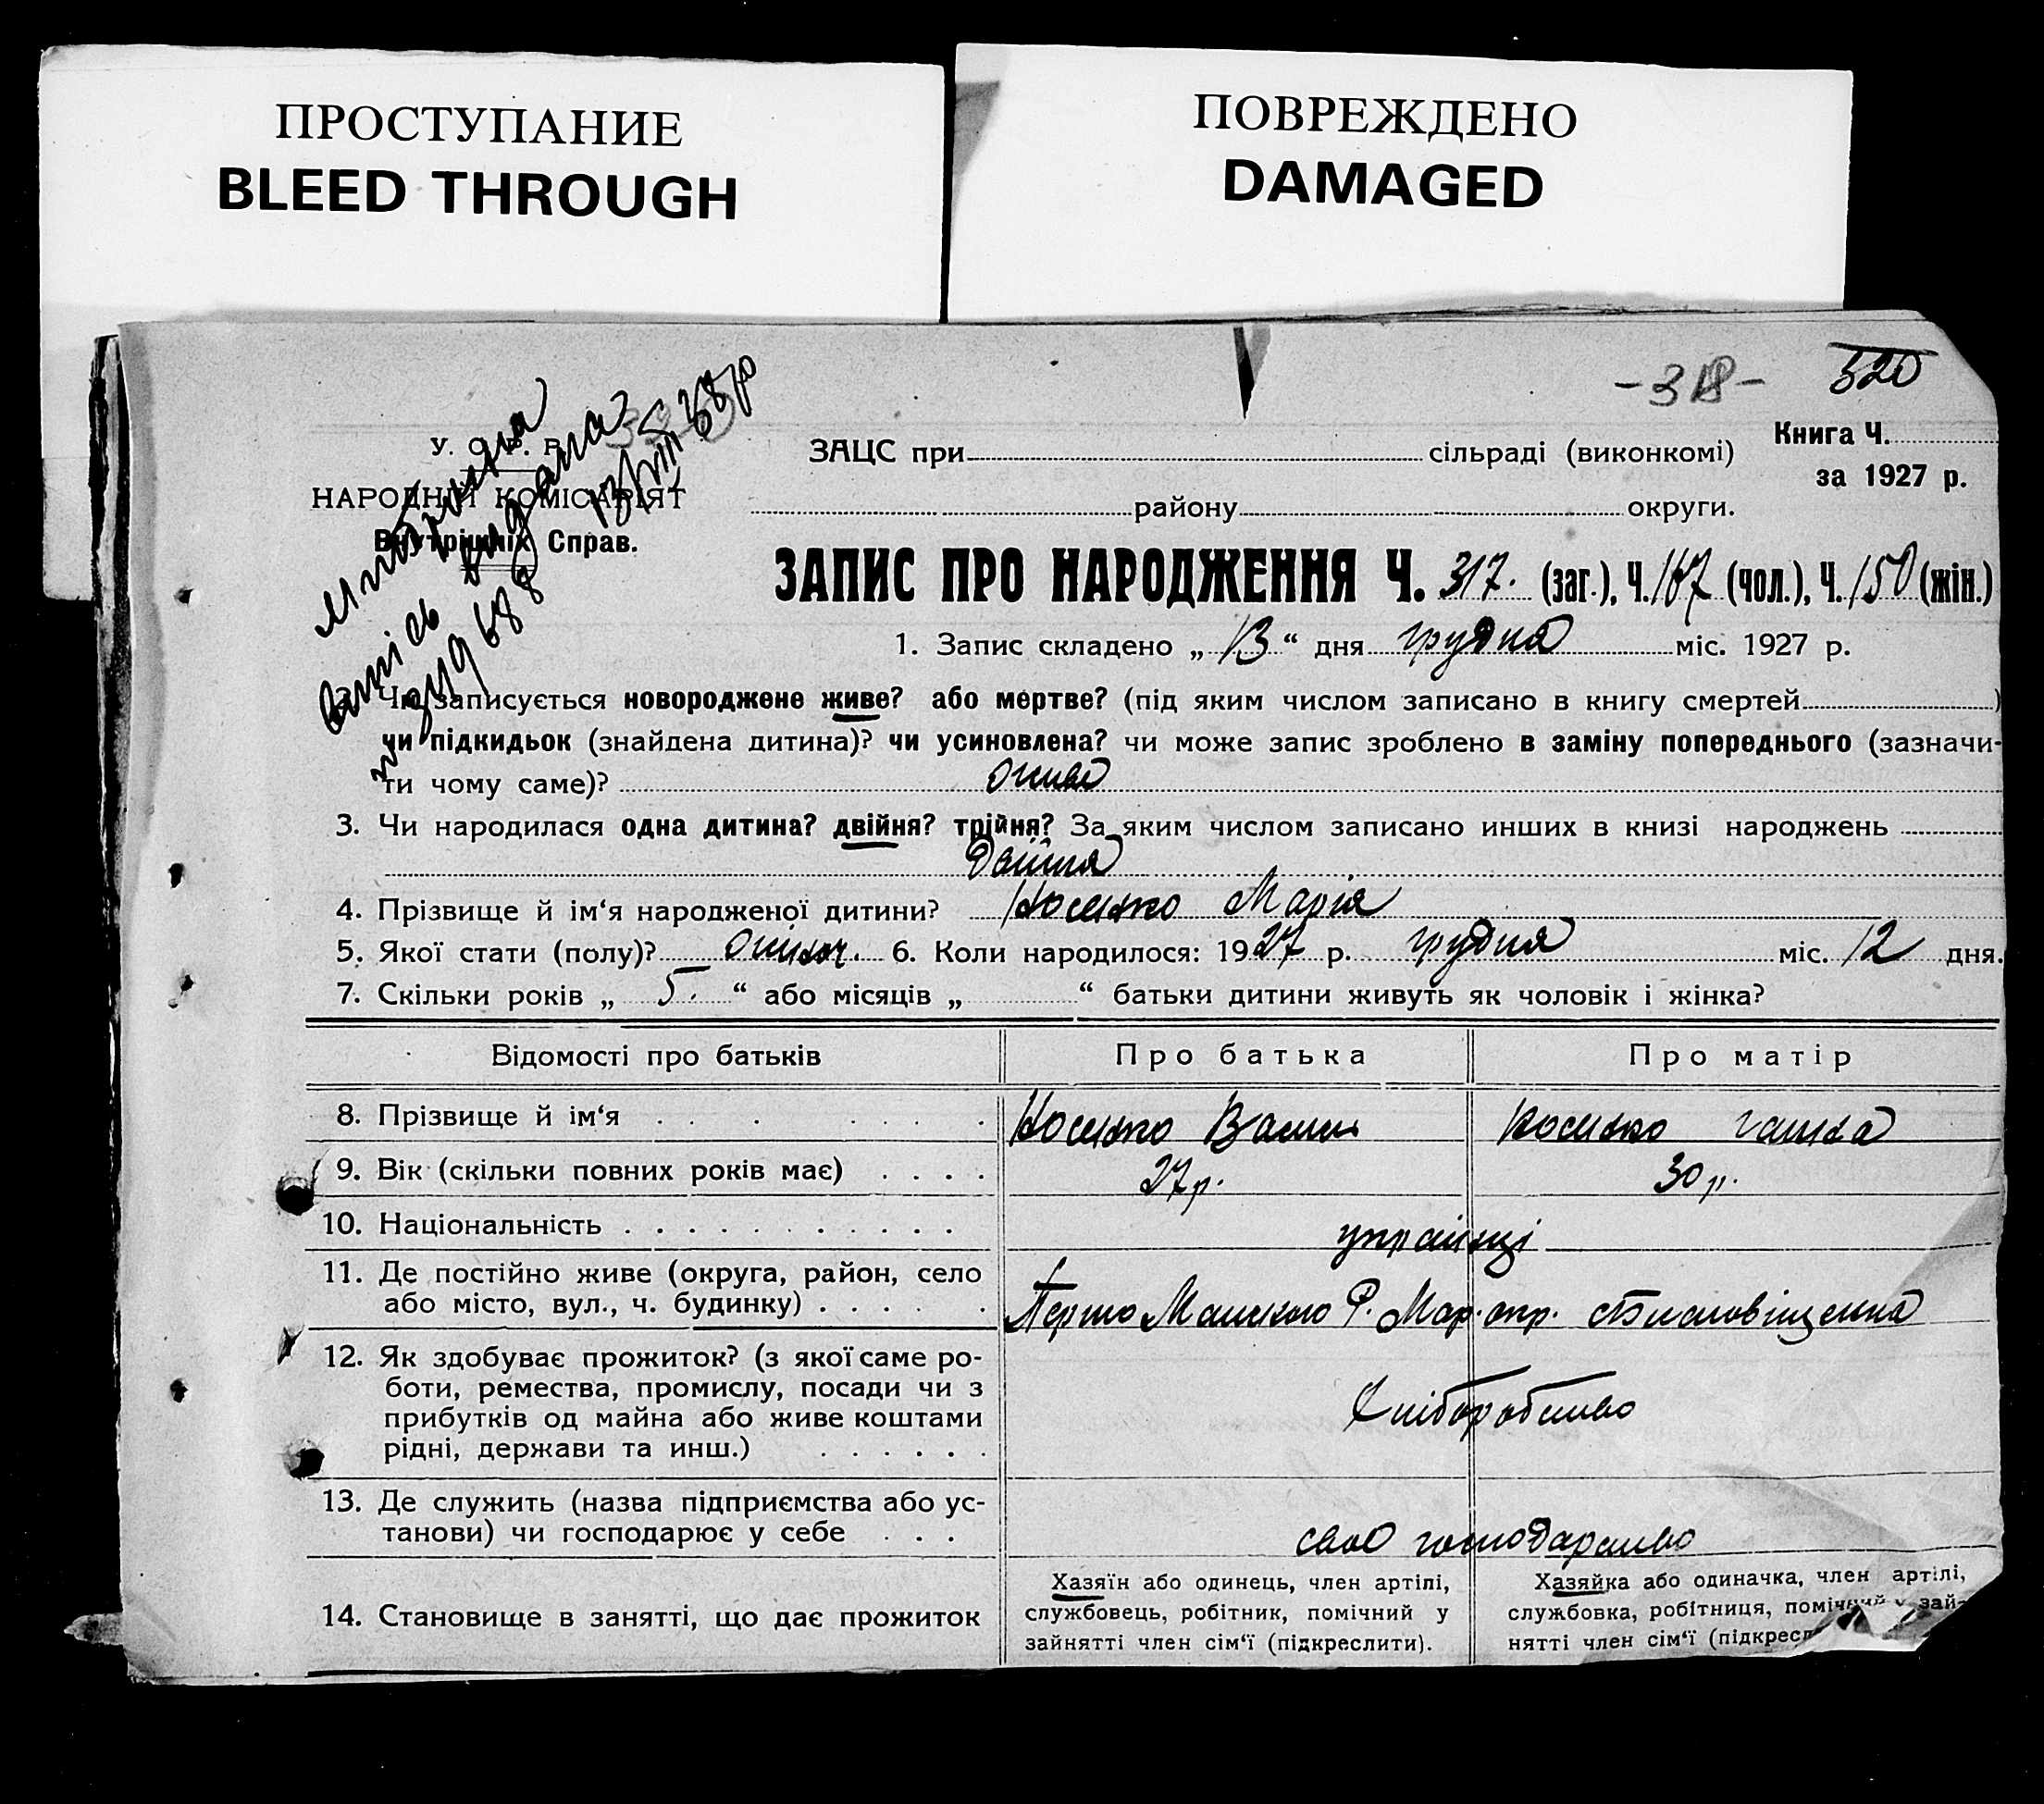 ПРОСТУПАНИЕ
BLEED THROUGH
ПОВРЕЖДЕНО
DAMAGED
-318- 320
У. С. Р. Р.
НАРОДНІЙ КОМІСАРІЯТ
Внутрішніх Справ.
видана
ЗАЦС при сільраді (виконкомі) Книга Ч.
за 1927 р.
району округи.
ЗАПИС ПРО НАРОДЖЕННЯ Ч. 317. (заг.), Ч. 167 (чол.), Ч. 150 (жін.)
1. Запис складено „ 13 “ дня грудня міс. 1927 р.
2. Чи записується новороджене живе? або мертве? (під яким числом записано в книгу смертей )
чи підкидьок (знайдена дитина)? чи усиновлена? чи може запис зроблено в заміну попереднього (зазначи-
ти чому саме)? живе
3. Чи народилася одна дитина? двійня? трійня? За яким числом записано инших в книзі народжень
двійня
4. Прізвище й ім‘я народженої дитини? Носенко Марія
5. Якої стати (полу)? жіноч. 6. Коли народилося: 1927 р. грудня міс. 12 дня.
7. Скільки років „ 5. “ або місяців „ “ батьки дитини живуть як чоловік і жінка?
Відомості про батьків Про батька Про матір
8. Прізвище й ім‘я Носенко Васил Носенко Ганна
9. Вік (скільки повних років має) 27 р. 30 р.
10. Національність українці
11. Де постійно живе (округа, район, село
або місто, вул., ч. будинку) Мар. окр.
12. Як здобуває прожиток? (з якої саме ро-
боти, ремества, промислу, посади чи з
прибутків од майна або живе коштами
рідні, держави та инш.) Хліборобство
13. Де служить (назва підприємства або ус-
танови) чи господарює у себе своє господарство
14. Становище в занятті, що дає прожиток
Хазяїн або одинець, член артілі,
службовець, робітник, помічний у
зайнятті член сім‘ї (підкреслити).
Хазяйка або одиначка, член артілі,
службовка, робітниця, помічний у зай-
нятті член сім‘ї (підкресл